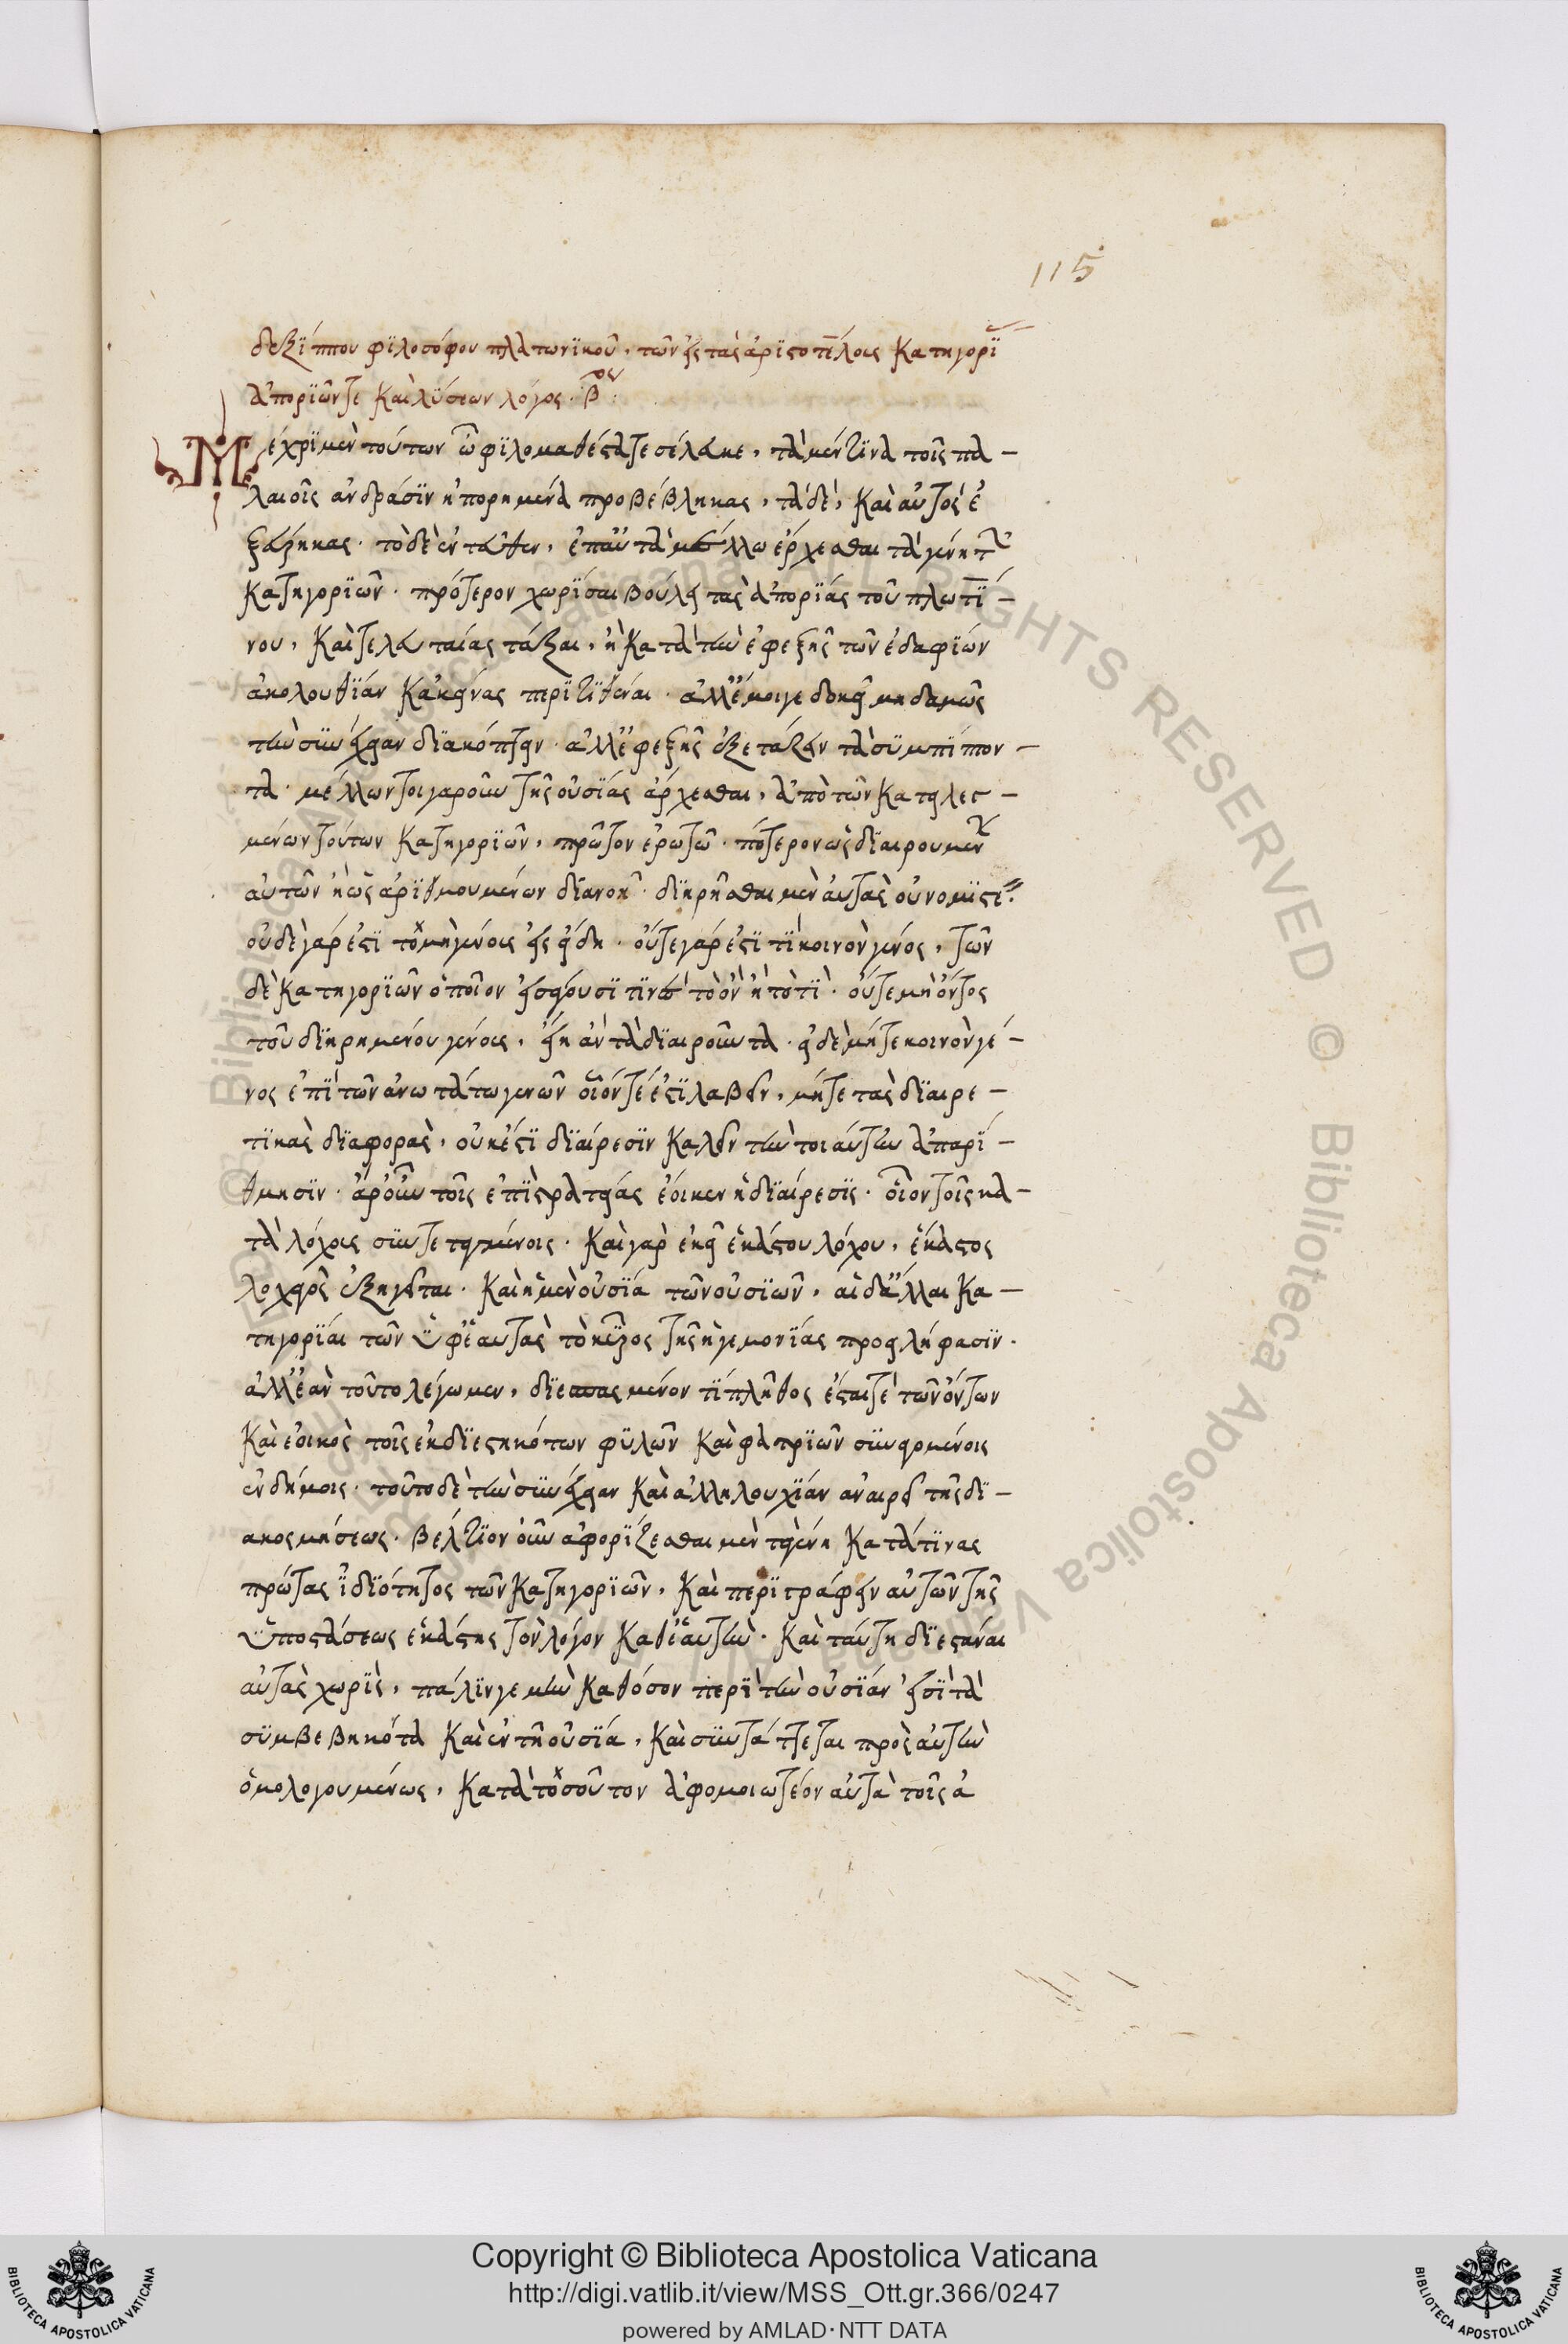 115
δεξίππου φιλοσόφου πλατωνικοῦ, τῶν εἰς τὰς ἀριστοτέλους κατηγορι
ἀποριῶν τε καὶ λύσεων λόγος βος
Μέχρι μὲν τούτων ὦ φιλομαθέστατε σέλευκε, τὰ μέν τινα τοῖς πα-
λαιοῖς ἀνδράσιν ἠπορημένα προβέβληκας, τὰ δὲ, καὶ αὐτὸς ἐ
ξεύρηκας. τὸ δὲ ἐντεῦθεν, ἐπ' αὐτὰ μέλλω ἔρχεσθαι τὰ γένη τ
κατηγοριῶν. πρότερον χωρίσαι βούλει τὰς ἀπορίας τοῦ πλωτί-
νου, καὶ τελευταίας τάξαι, ἢ κατὰ τὴν ἐφεξῆς τῶν ἐδαφίων
ἀκολουθίαν κἀκείνας περιτιθέναι. ἀλλ' ἔμοιγε δοκεῖ μηδαμῶς
τὴν συνέχειαν διακόπτειν. ἀλλ' ἐφεξῆς ἐξετάζειν τὰ συμπίπτον-
τα. μέλλων τοιγαροῦν τῆς οὐσίας ἄρχεσθαι, ἀπὸ τῶν κατειλεγ-
μένων τούτων κατηγοριῶν, πρῶτον ἐρωτῶ. πότερον ὡς διαιρουμεν
αὐτῶν ἢ ὡς ἀριθμουμένων διανοῇ. διῃρῆσθαι μὲν αὐτὰς οὐ νομιστέ:
οὐδὲ γάρ ἐστι τομὴ γένους εἰς εἴδη. οὔτε γάρ ἐστί τι κοινὸν γένος, τῶν
δὲ κατηγοριῶν ὁποῖον εἰσφέρουσί τινες τὸ ὂν ἢ τὸ τὶ. οὔτε μὴ ὄντος
τοῦ διῃρημένου γένους, εἴη ἂν τὰ διαιροῦντα. εἰ δὲ μήτε κοινὸν γέ-
νος ἐπὶ τῶν ἀνωτάτω γενῶν οἷόν τέ ἐστι λαβεῖν, μήτε τὰς διαιρε-
τικὰς διαφοράς, οὐκ ἔστι διαίρεσιν καλεῖν τὴν τοιαύτην ἀπαρί-
θμησιν. ἆρ' οὖν τοῖς ἐπὶ στρατείας ἔοικεν ἡ διαίρεσις. οἷον τοῖς κα-
τὰ λόχους συντεταγμένοις. καὶ γὰρ ἐκεῖ ἑκάστου λόχου, ἕκαστος
λοχαγὸς ἐξηγεῖται. καὶ ἡ μὲν οὐσία τῶν οὐσιῶν, αἱ δ' ἄλλαι κα-
τηγορίαι τῶν ὑφ' ἑαυτὰς τὸ κῦρος τῆς ἡγεμονίας προειλήφασιν.
ἀλλ' ἐὰν τοῦτο λέγωμεν, διεσπασμένον τι πλῆθος ἔσται τε τῶν ὄντων
καὶ ἐοικὸς τοῖς ἐκ διεστηκότων φυλῶν καὶ φατριῶν συναγομένοις
ἐν δήμοις. τοῦτο δὲ τὴν συνέχειαν καὶ ἀλληλουχίαν ἀναιρεῖ τῆς δι-
ακοσμήσεως. βέλτιον οὖν ἀφορίζεσθαι μὲν τὰ γένη κατά τινας
πρώτας ἰδιότητος τῶν κατηγοριῶν, καὶ περιγράφειν αὐτῶν τῆς
ὑποστάσεως ἑκάστης τὸν λόγον καθ' ἑαυτὴν. καὶ ταύτῃ διεστάναι
αὐτὰς χωρὶς, πάλιν γε μὴν καθόσον περὶ τὴν οὐσίαν εἰσὶ τὰ
συμβεβηκότα καὶ ἐν τῇ οὐσίᾳ, καὶ συντάττεται πρὸς αὐτὴν
ὁμολογουμένως, κατὰ τοσοῦτον ἀφομοιωτέον αὐτὰ τοῖς ἀ
Copyright © Biblioteca Apostolica Vaticana
http://digi.vatlib.it/view/MSS_Ott.gr.366/0247
powered by AMLAD·NTT DATA